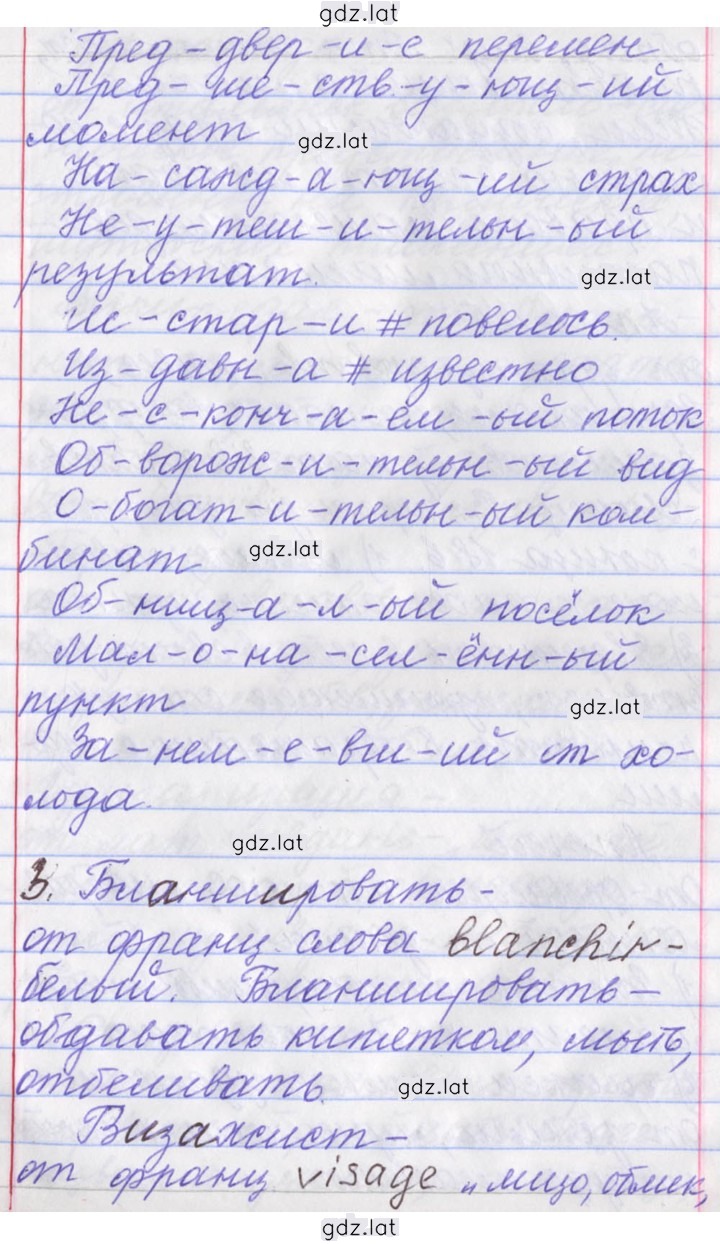 gdz.lat
Пред-двер-и-е перемен
Пред-ше-ств-у-ющ-ий
момент
gdz.lat
На-сажд-а-ющ-ий страх
Не-у-теш-и-тельн-ый
результат.
gdz.lat
Ис-стар-и # повелось.
Из-давн-а # известно
Не-с-конч-а-ем-ый поток
Об-ворож-и-тельн-ый вид
О-богат-и-тельн-ый ком-
бинат
gdz.lat
Об-нищ-а-л-ый посёлок
Мал-о-на-сел-ённ-ый
пункт
gdz.lat
За-нем-е-вш-ий от хо-
лода.
gdz.lat
3. Бланшировать-
от франц. слова blanchir-
белый. Бланшировать-
обдавать кипятком, мыть,
отбеливать.
gdz.lat
Визажист-
от франц. visage "лицо, облик,
gdz.lat